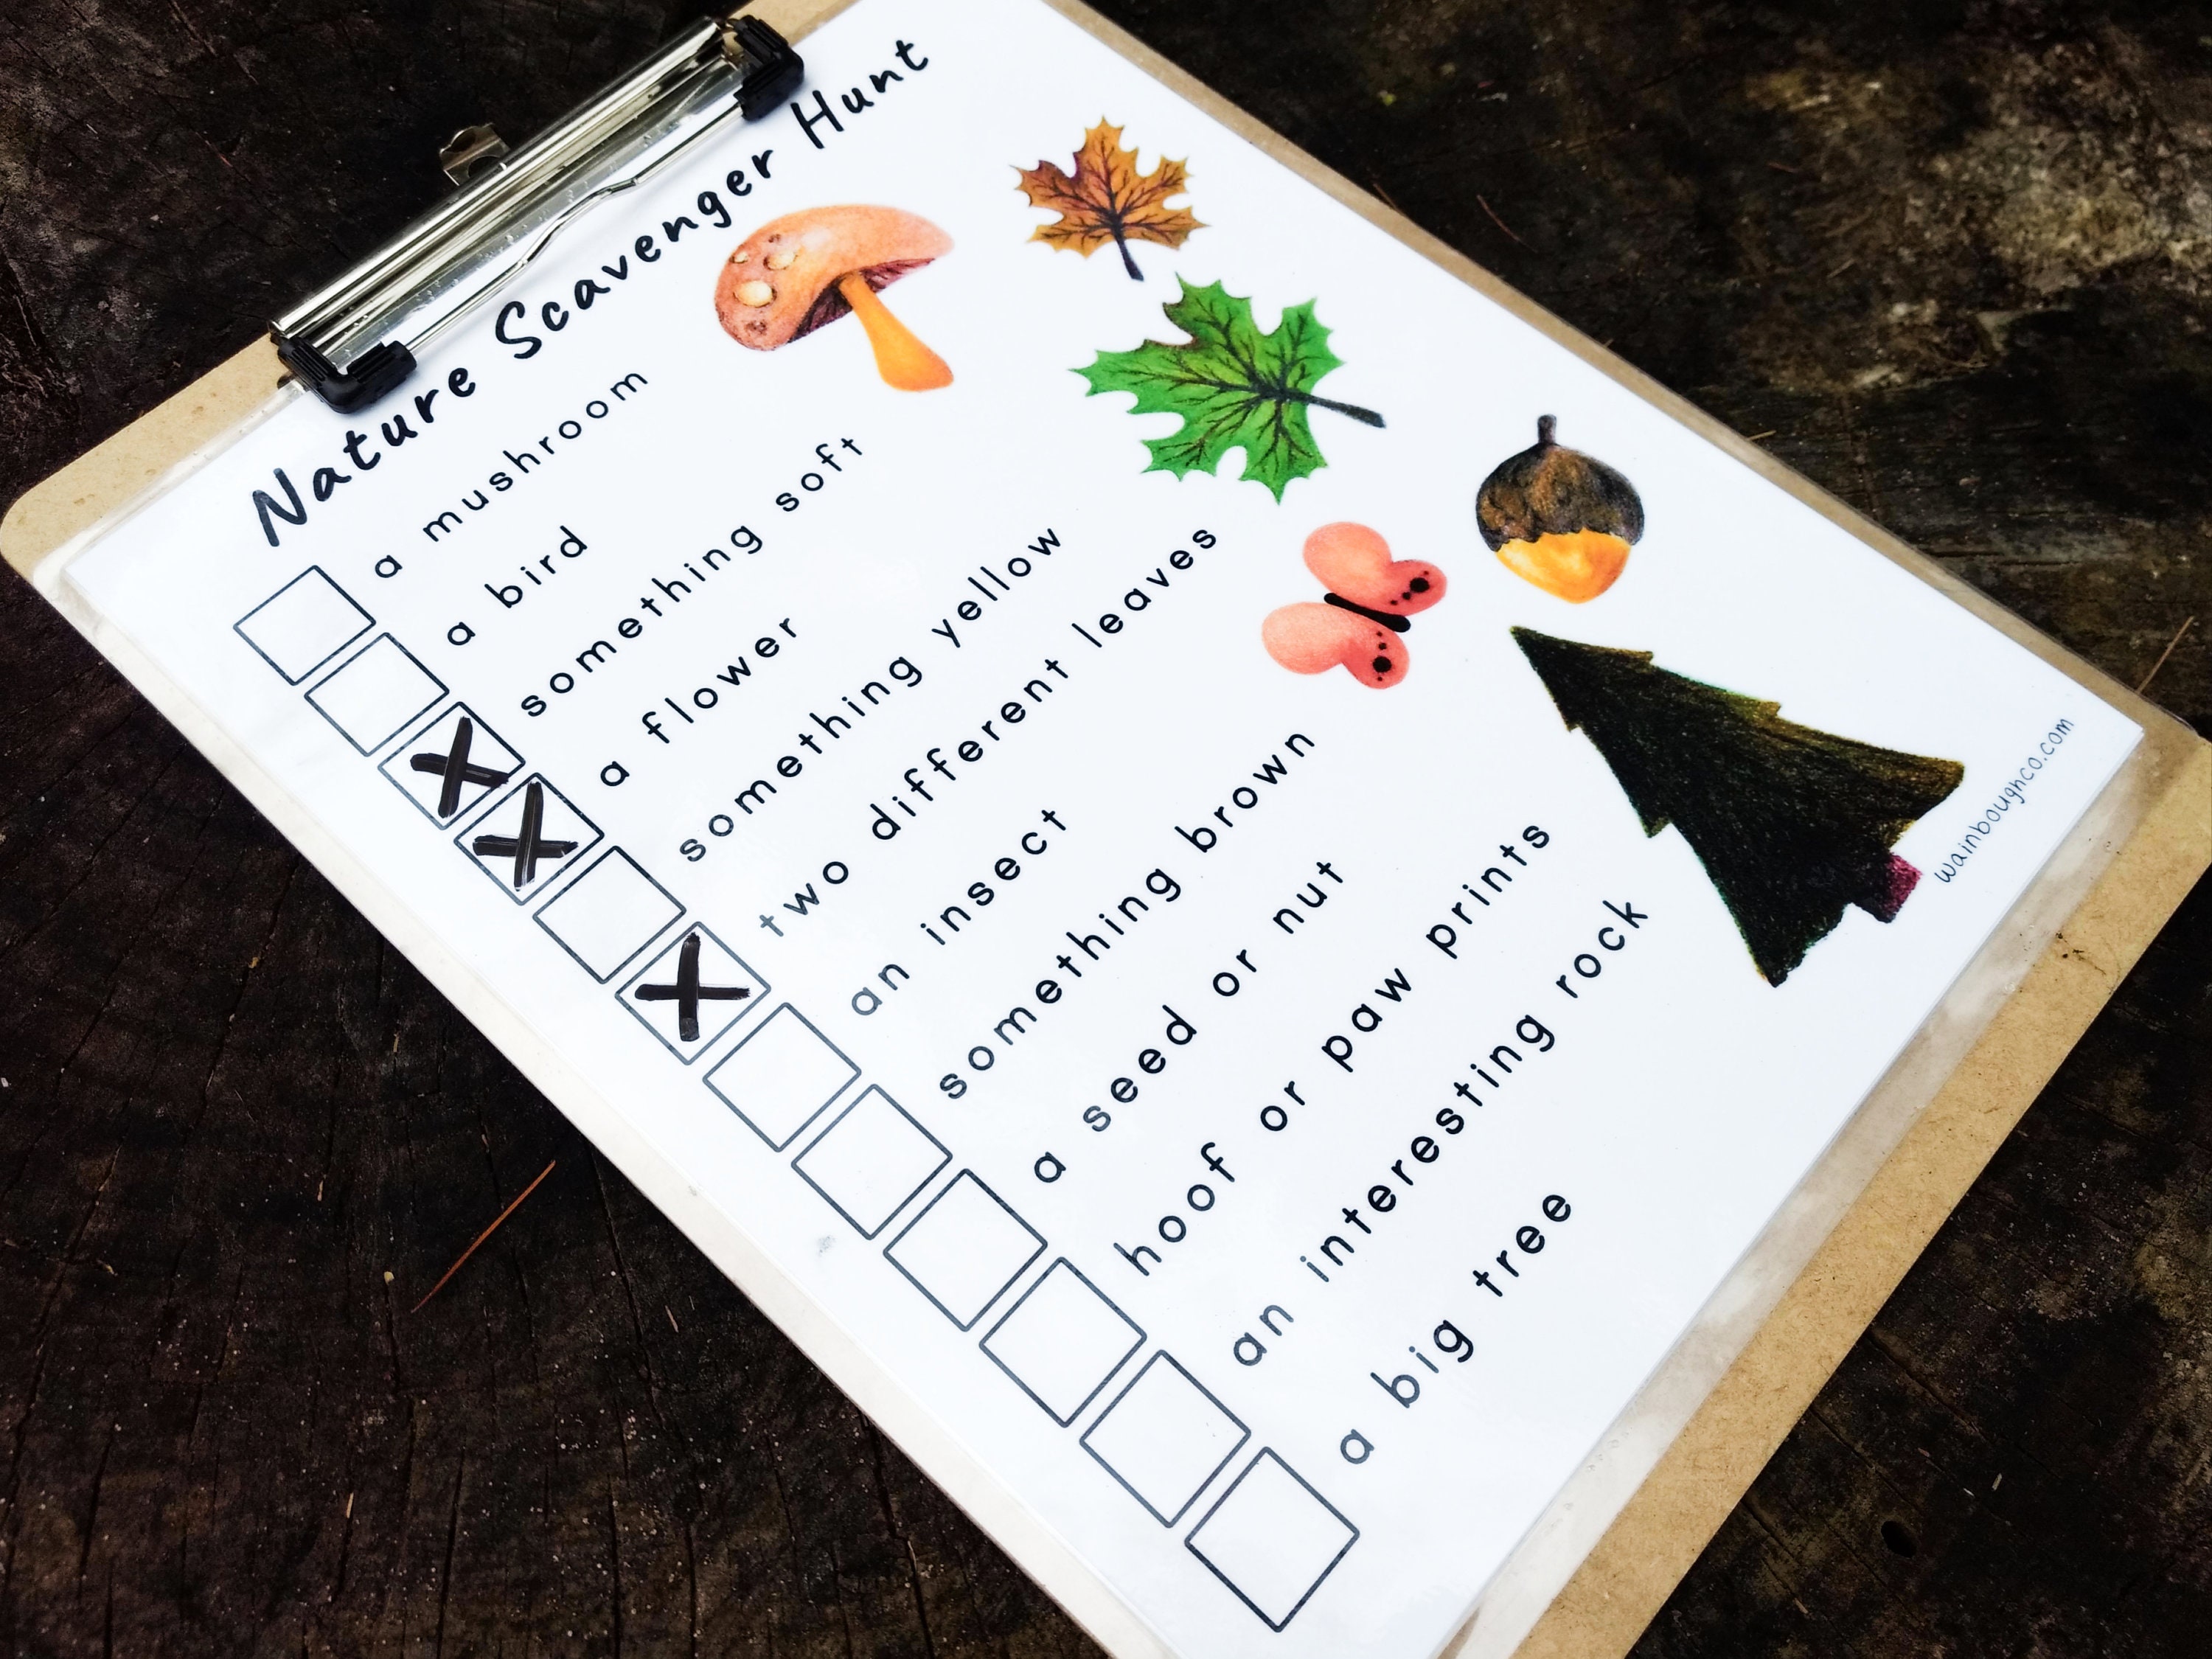 Nature Scavenger Hunt
a mushroom
a bird
something soft
a flower
something yellow
two different leaves
an insect
something brown
a seed or nut
hoof or paw prints
an interesting rock
a big tree
wainboughco.com